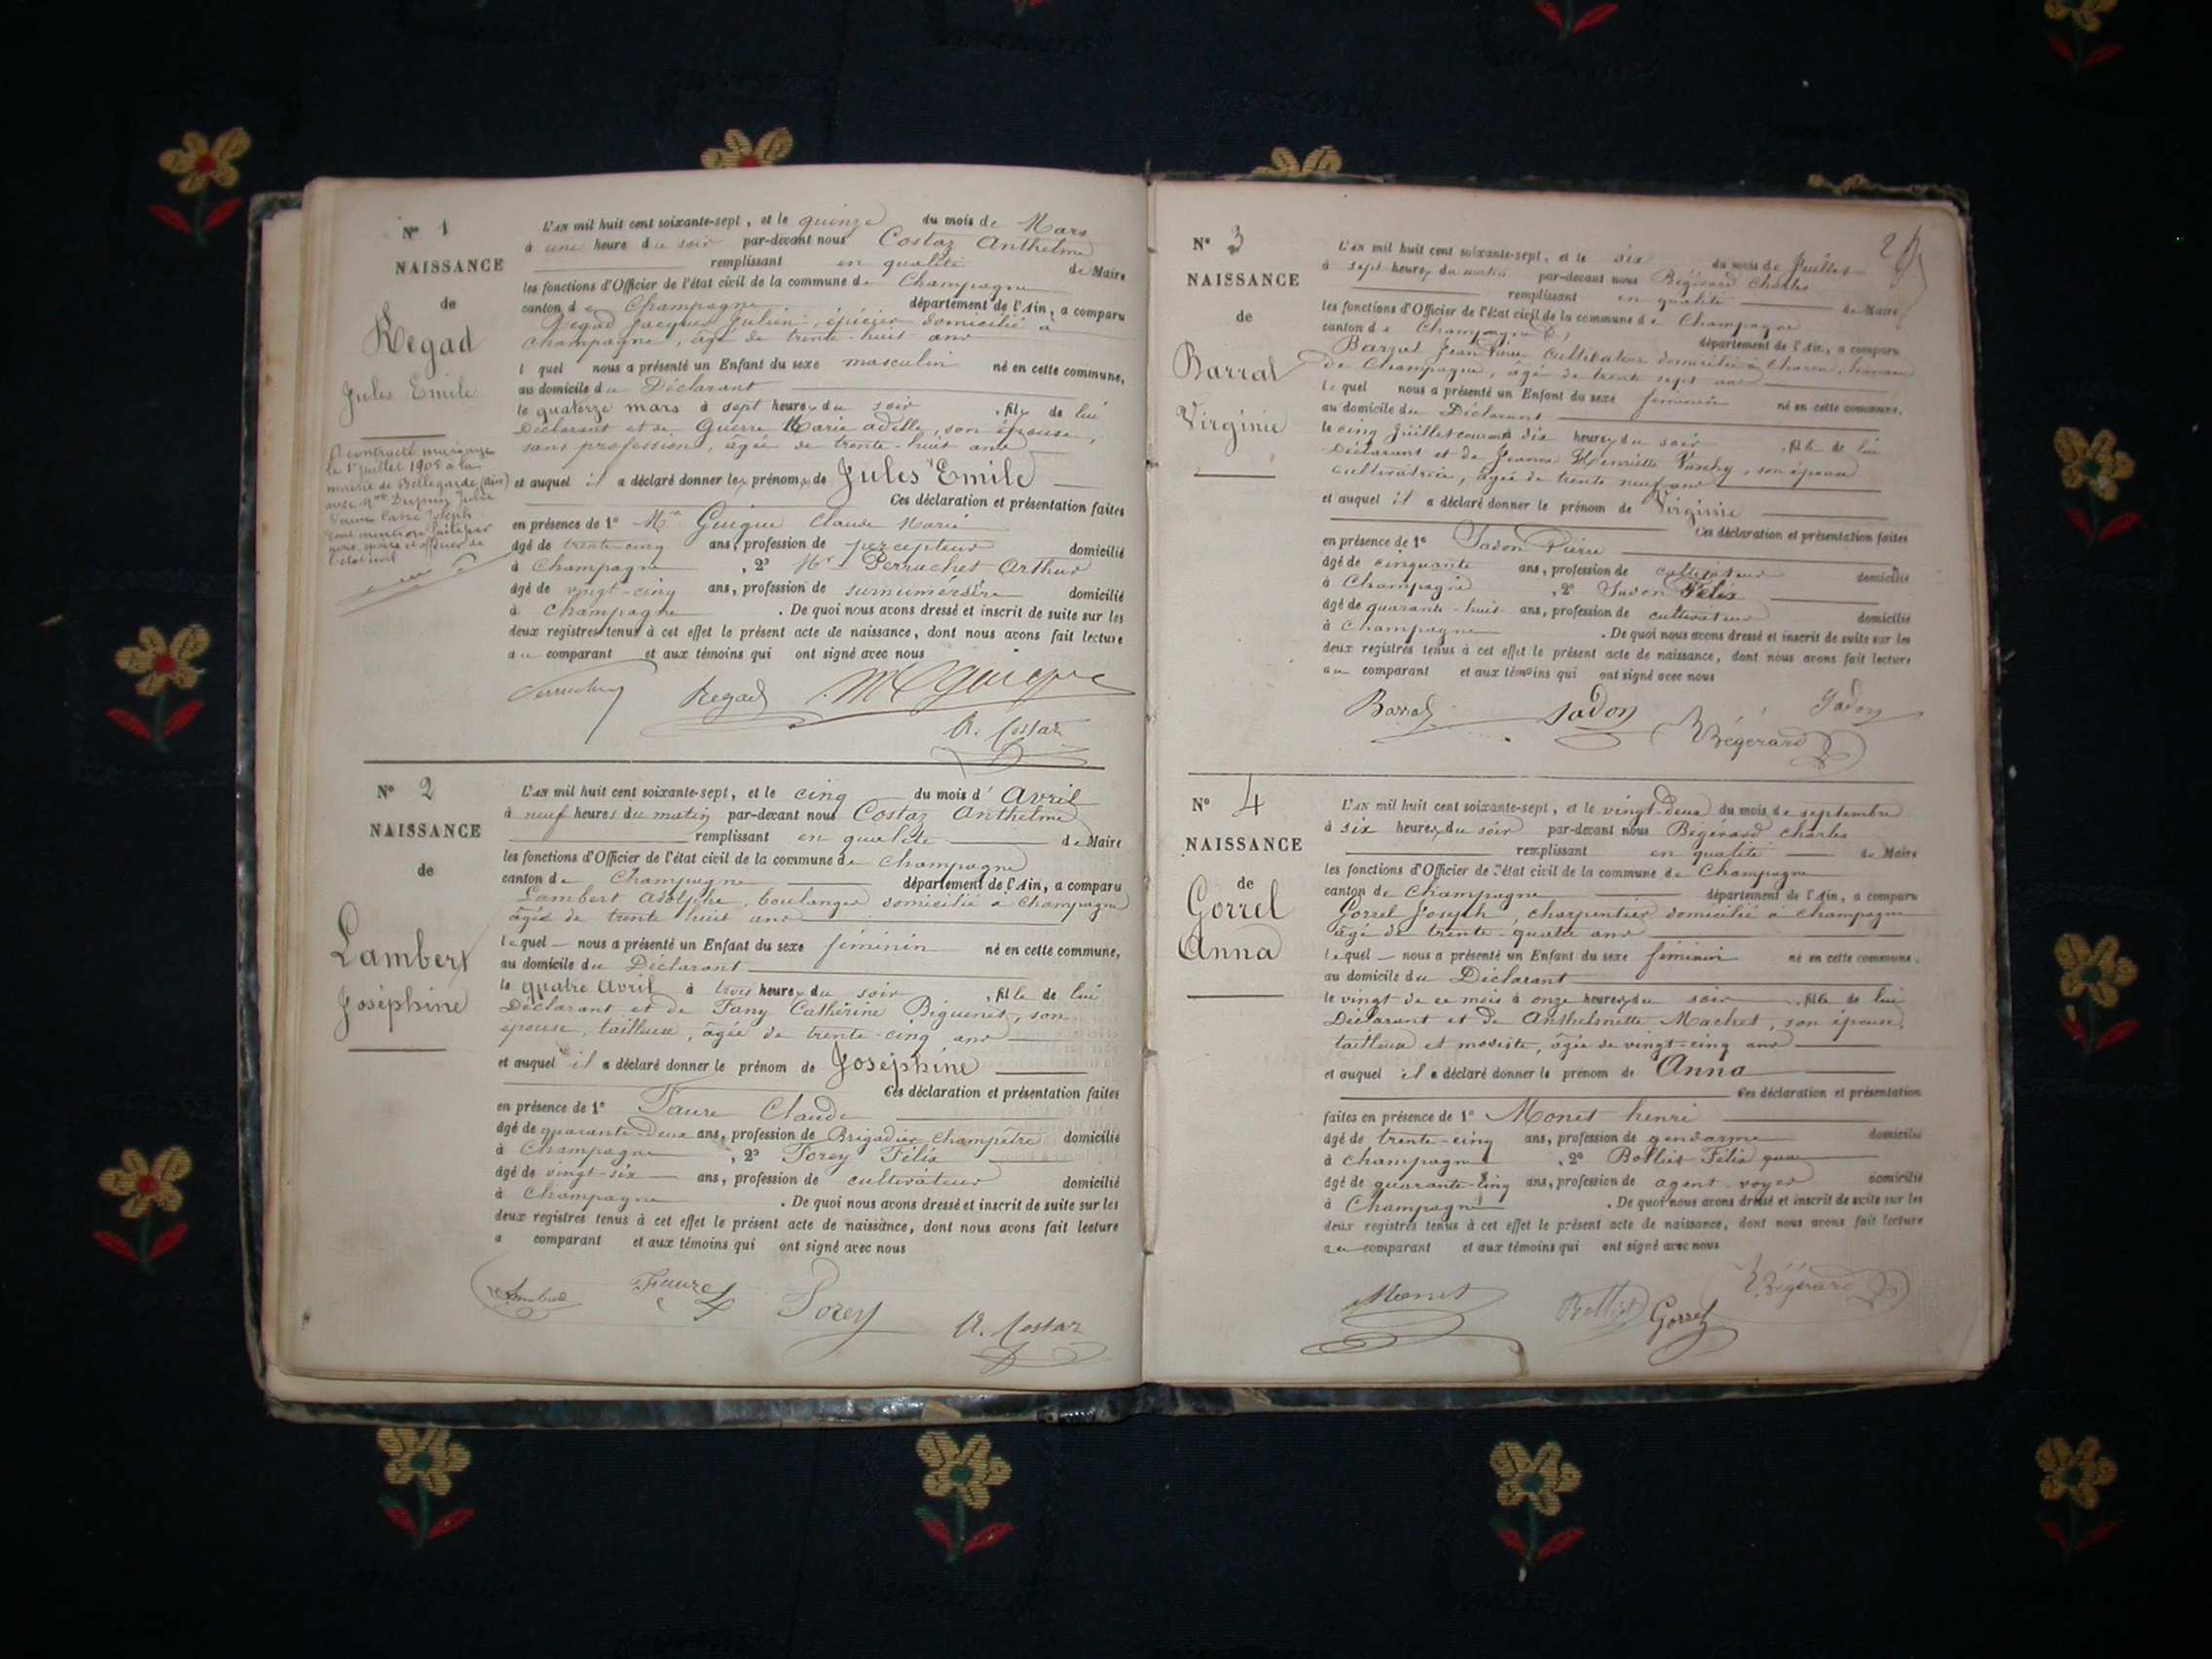 N° 1
NAISSANCE
de
Regad
Jules Emile
A contracté mariage
le 1er juillet 1905 à la
mairie de Bellegarde (Ain)
avec Dupuy Julie
L'AN mil huit cent soixante-sept, et le quinze du mois de Mars
à une heure du soir par-devant nous Costaz Anthelme
remplissant en qualité de Maire
les fonctions d'Officier de l'état civil de la commune de Champagne
canton de Champagne département de l'Ain, a comparu
Regad Jacques Julien, épicier domicilié à
Champagne, âgé de trente-huit ans
lequel nous a présenté un Enfant du sexe masculin né en cette commune,
au domicile du Déclarant
le quatorze mars à sept heures du soir, fils de lui
Déclarant et de Guerre Marie adelle, son épouse,
sans profession, âgée de trente-huit ans
et auquel il a déclaré donner les prénoms de Jules Emile
Ces déclaration et présentation faites
en présence de 1° Mr Guigue Claude Marie
âgé de trente cinq ans, profession de percepteur domicilié
à Champagne, 2° Mr Perruchet Arthur
âgé de vingt-cinq ans, profession de surnuméraire domicilié
à Champagne. De quoi nous avons dressé et inscrit de suite sur les
deux registres tenus à cet effet le présent acte de naissance, dont nous avons fait lecture
au comparant et aux témoins qui ont signé avec nous
Regad Guigue
A. Costaz
N° 2
NAISSANCE
de
Lambert
Joséphine
L'AN mil huit cent soixante-sept, et le cinq du mois d'Avril
à neuf heures du matin par-devant nous Costaz Anthelme
remplissant en qualité de Maire
les fonctions d'Officier de l'état civil de la commune de Champagne
canton de Champagne département de l'Ain, a comparu
Lambert Adolphe, boulanger domicilié à Champagne
âgé de trente huit ans
lequel nous a présenté un Enfant du sexe féminin né en cette commune,
au domicile du Déclarant
le quatre Avril à trois heures du soir, fille de lui
Déclarant et de Fany Catherine Biguinet, son
épouse, tailleuse, âgée de trente-cinq ans
et auquel il a déclaré donner le prénom de Joséphine
Ces déclaration et présentation faites
en présence de 1° Faure Claude
âgé de quarante-deux ans, profession de Brigadier Champêtre domicilié
à Champagne, 2° Porey Félix
âgé de vingt-six ans, profession de cultivateur domicilié
à Champagne. De quoi nous avons dressé et inscrit de suite sur les
deux registres tenus à cet effet le présent acte de naissance, dont nous avons fait lecture
a comparant et aux témoins qui ont signé avec nous
Faure Porey A. Costaz
N° 3
NAISSANCE
de
Barral
Virginie
L'AN mil huit cent soixante-sept, et le six du mois de Juillet
à sept heures du matin par-devant nous Bégérard Charles
remplissant en qualité de Maire
les fonctions d'Officier de l'état civil de la commune de Champagne
canton de Champagne département de l'Ain, a comparu
Barral Jean Pierre Cultivateur domicilié à
de Champagne, âgé de trente sept ans
lequel nous a présenté un Enfant du sexe féminin né en cette commune,
au domicile du Déclarant
le cinq Juillet courant dix heures du soir, fille de lui
Déclarant et de Jeanne Henriette, son épouse
cultivatrice, âgée de trente neuf ans
et auquel il a déclaré donner le prénom de Virginie
Ces déclaration et présentation faites
en présence de 1° Jadon Pierre
âgé de cinquante ans, profession de cultivateur domicilié
à Champagne, 2° Jadon Félix
âgé de quarante-huit ans, profession de cultivateur domicilié
à Champagne. De quoi nous avons dressé et inscrit de suite sur les
deux registres tenus à cet effet le présent acte de naissance, dont nous avons fait lecture
au comparant et aux témoins qui ont signé avec nous
Barral Jadon Jadon
Bégérard
N° 4
NAISSANCE
de
Gorrel
Anna
L'AN mil huit cent soixante-sept, et le vingt-deux du mois de septembre
à six heures du soir par-devant nous Bégérard Charles
remplissant en qualité de Maire
les fonctions d'Officier de l'état civil de la commune de Champagne
canton de Champagne département de l'Ain, a comparu
Gorrel Joseph, charpentier domicilié à Champagne
âgé de trente-quatre ans
lequel nous a présenté un Enfant du sexe féminin né en cette commune,
au domicile du Déclarant
le vingt de ce mois à onze heures du soir, fille de lui
Déclarant et de Anthelmette Machet, son épouse,
tailleuse et modiste, âgée de vingt-cinq ans
et auquel il a déclaré donner le prénom de Anna
Ces déclaration et présentation
faites en présence de 1° Monet henri
âgé de trente-cinq ans, profession de gendarme domicilié
à Champagne, 2° Bolliet Félix
âgé de quarante-cinq ans, profession de agent-voyer domicilié
à Champagne. De quoi nous avons dressé et inscrit de suite sur les
deux registres tenus à cet effet le présent acte de naissance, dont nous avons fait lecture
au comparant et aux témoins qui ont signé avec nous
Monet Bolliet Gorrel Bégérard